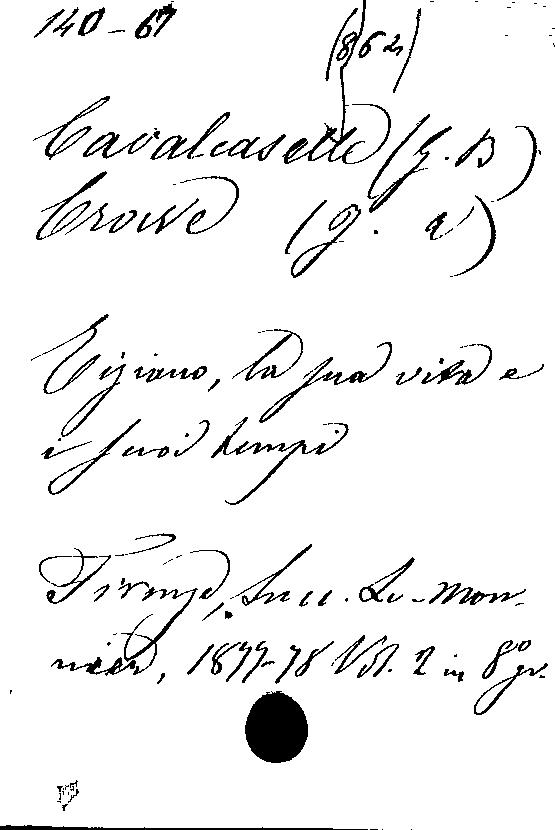 140-67 (862)
Cavalcaselle (G. B)
Crowe (G. A)
Tiziano, la sua vita e
i suoi tempi
Firenze, Succ. Le-Mon-
nier, 1877-78 Vol. 2 in 8º gr.